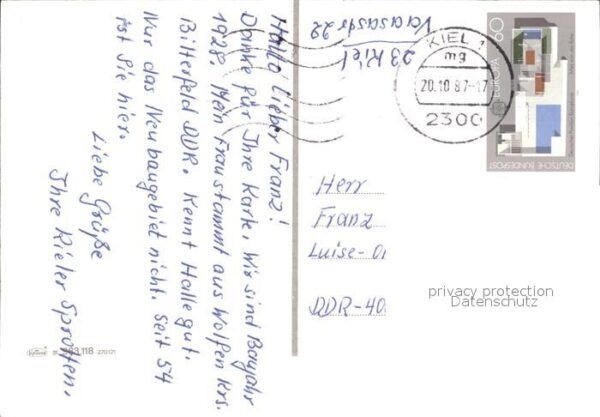 Hallo lieber Franz!
Danke für Ihre Karte. Wir sind Baujahr
1928. Mein Frau stammt aus Wolfen Krs.
Bitterfeld DDR. Kennt Halle gut.
Nur das Neubaugebiet nicht. Seit 54
ist Sie hier.
Liebe Grüße
Ihre Kieler Sprotten.
Vaasastr 22
23 Kiel
KIEL 1
mg
20.10.87-17
2300
60
EUROPA
DEUTSCHE BUNDESPOST
Herr
Franz
Luise-O
DDR-40
privacy protection
Datenschutz
118